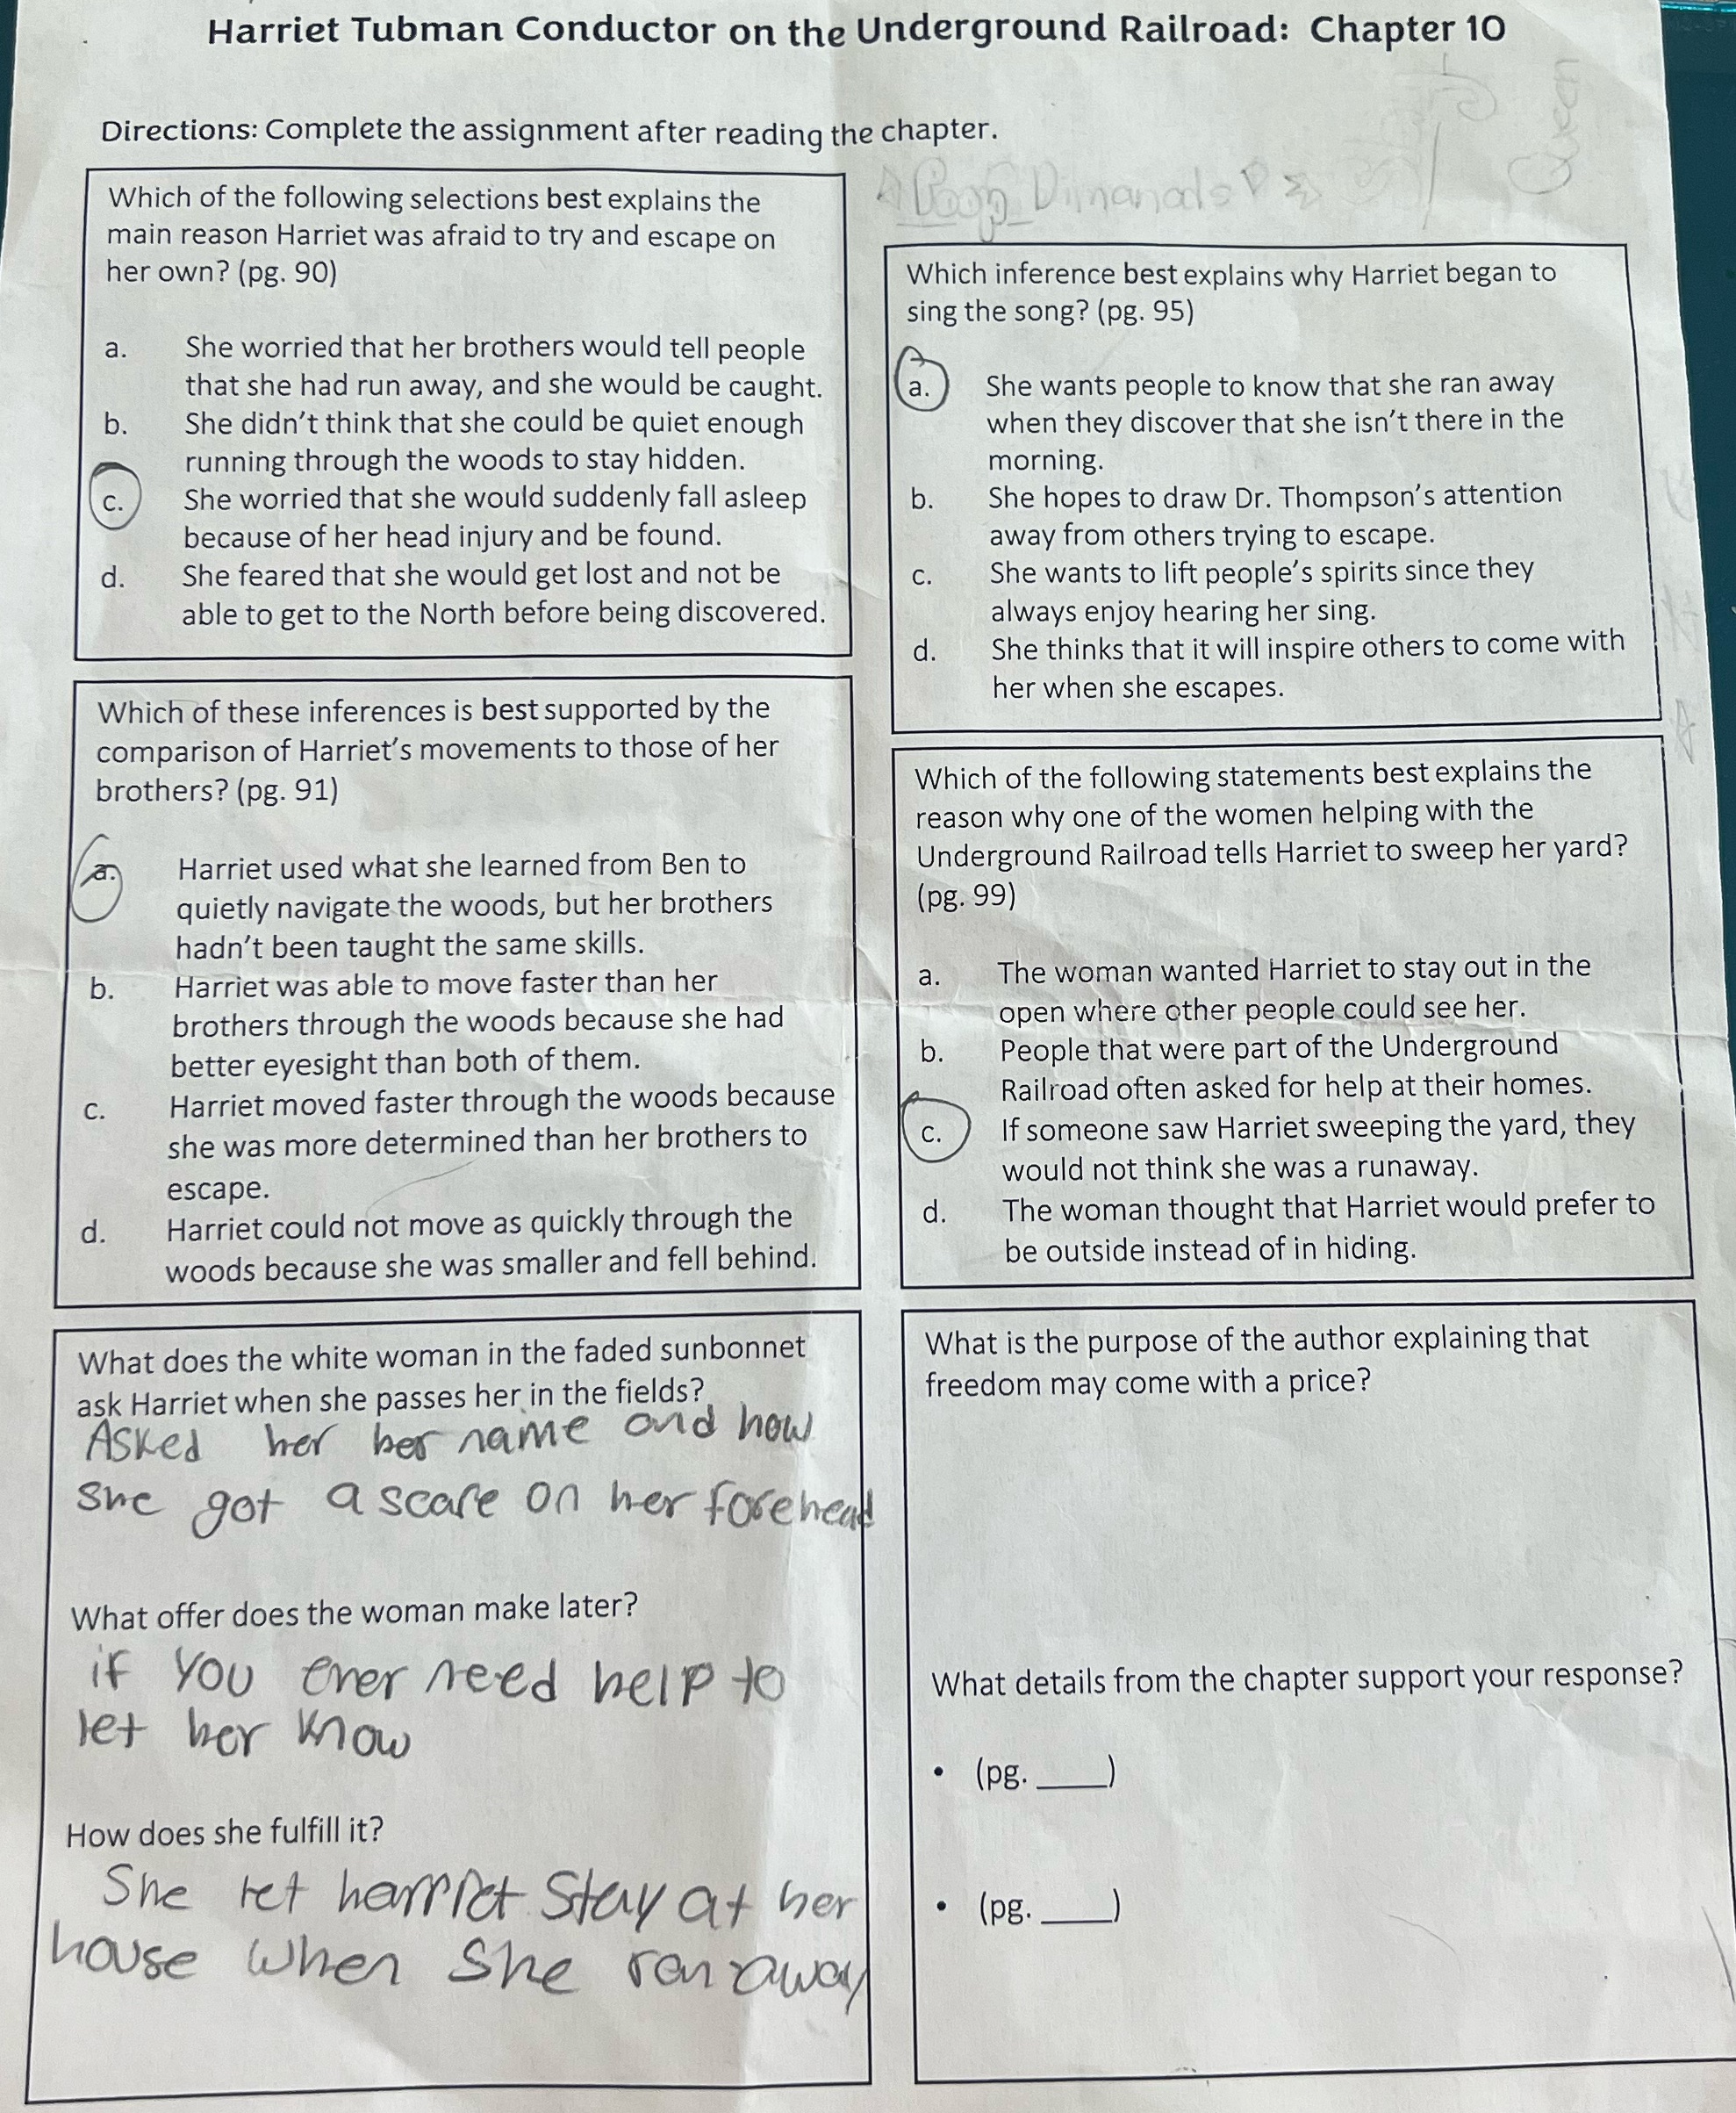 Harriet Tubman Conductor on the Underground Railroad: Chapter 10
Directions: Complete the assignment after reading the chapter.
Poop Dimanads
Queen
Which of the following selections best explains the
main reason Harriet was afraid to try and escape on
her own? (pg. 90)
a. She worried that her brothers would tell people
that she had run away, and she would be caught.
b. She didn't think that she could be quiet enough
running through the woods to stay hidden.
c. She worried that she would suddenly fall asleep
because of her head injury and be found.
d. She feared that she would get lost and not be
able to get to the North before being discovered.
Which of these inferences is best supported by the
comparison of Harriet's movements to those of her
brothers? (pg. 91)
a. Harriet used what she learned from Ben to
quietly navigate the woods, but her brothers
hadn't been taught the same skills.
b. Harriet was able to move faster than her
brothers through the woods because she had
better eyesight than both of them.
c. Harriet moved faster through the woods because
she was more determined than her brothers to
escape.
d. Harriet could not move as quickly through the
woods because she was smaller and fell behind.
What does the white woman in the faded sunbonnet
ask Harriet when she passes her in the fields?
Asked her her name and how
she got a scare on her forehead
What offer does the woman make later?
if you ever need help to
let her know
How does she fulfill it?
She let harriet stay at her
house when she ran away
Which inference best explains why Harriet began to
sing the song? (pg. 95)
a. She wants people to know that she ran away
when they discover that she isn't there in the
morning.
b. She hopes to draw Dr. Thompson's attention
away from others trying to escape.
c. She wants to lift people's spirits since they
always enjoy hearing her sing.
d. She thinks that it will inspire others to come with
her when she escapes.
Which of the following statements best explains the
reason why one of the women helping with the
Underground Railroad tells Harriet to sweep her yard?
(pg. 99)
a. The woman wanted Harriet to stay out in the
open where other people could see her.
b. People that were part of the Underground
Railroad often asked for help at their homes.
c. If someone saw Harriet sweeping the yard, they
would not think she was a runaway.
d. The woman thought that Harriet would prefer to
be outside instead of in hiding.
What is the purpose of the author explaining that
freedom may come with a price?
What details from the chapter support your response?
• (pg. ____)
• (pg. ____)